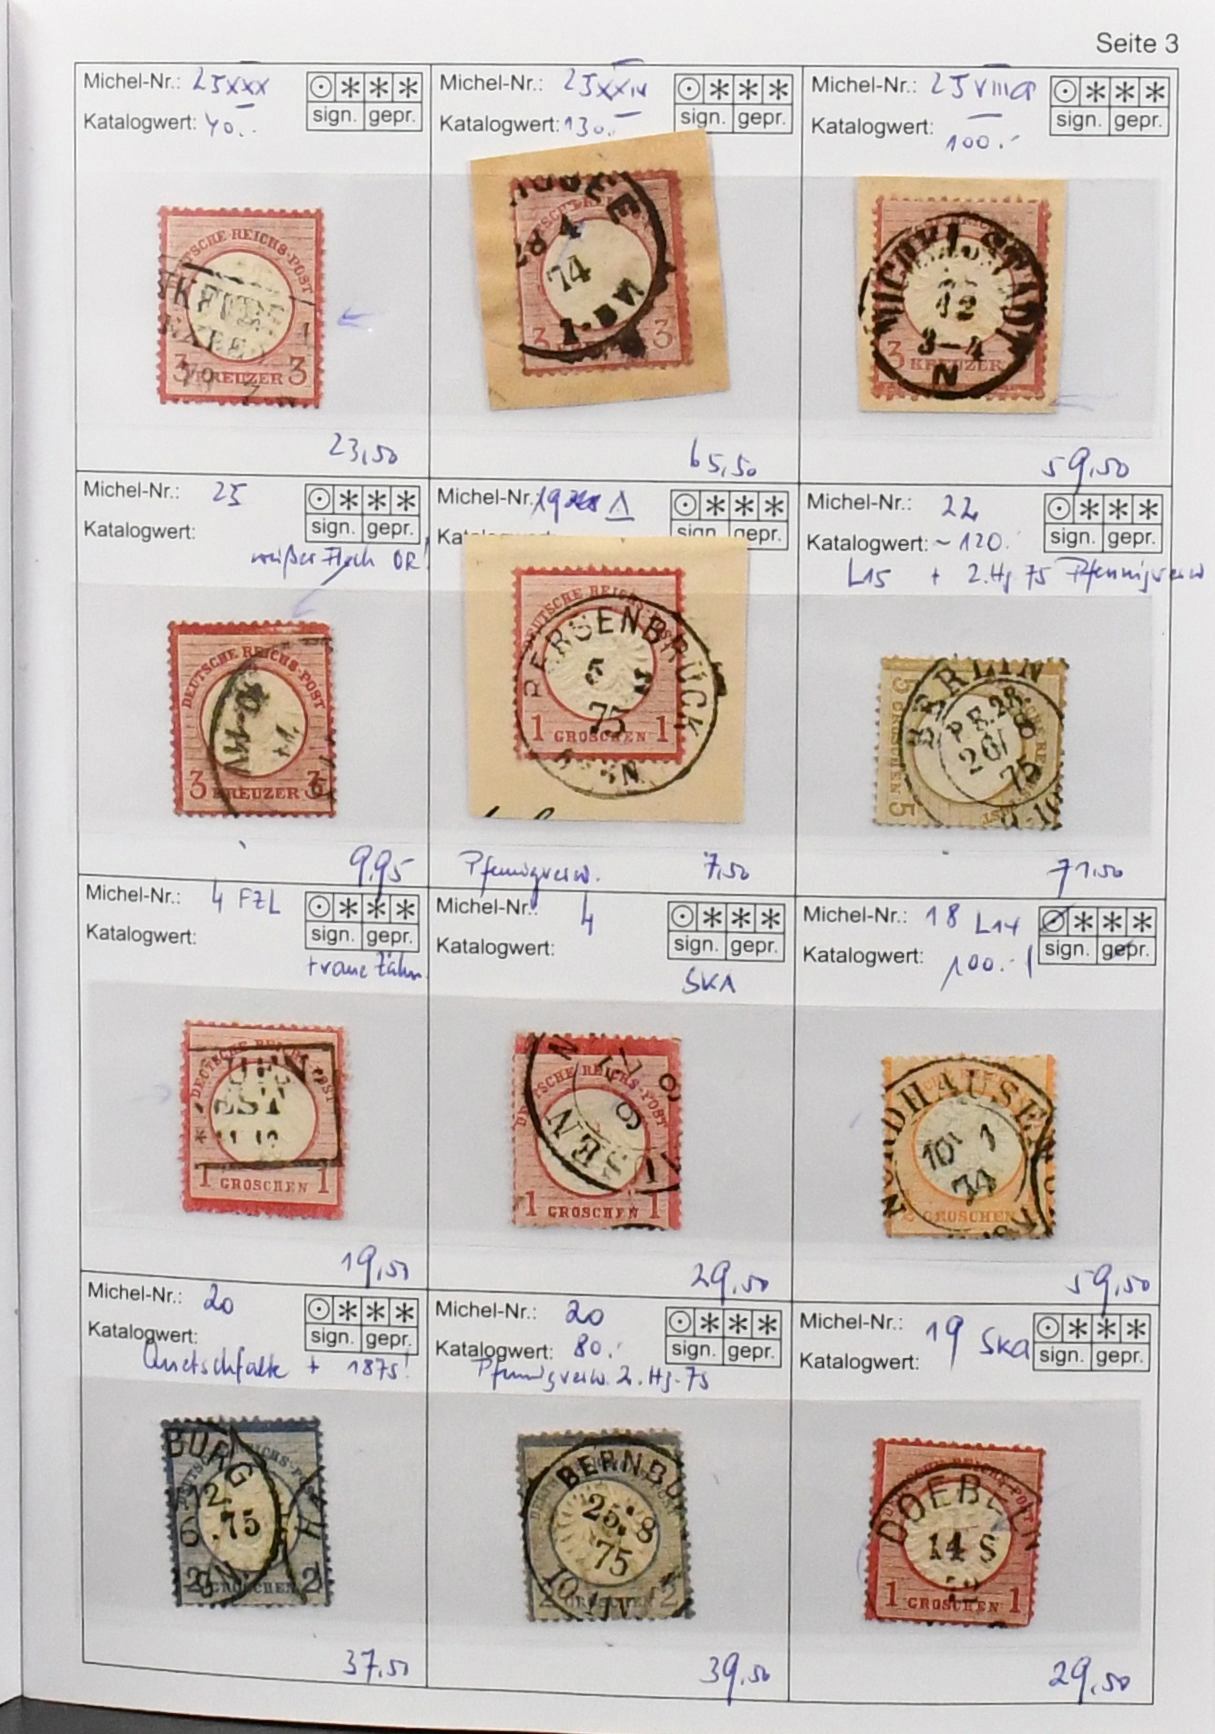 Seite 3
Michel-Nr.: 25 XXX
Katalogwert: 40.-
sign. gepr.
DEUTSCHE REICHS-POST
3 KREUZER 3
23,50
Michel-Nr.: 25 XXIV
Katalogwert: 130.-
sign. gepr.
74
3 3
65,50
Michel-Nr.: 25 VIIIa
Katalogwert: 100.-
sign. gepr.
MICHELSTADT
12
3-4
N
3 KREUZER
59,50
Michel-Nr.: 25
Katalogwert:
sign. gepr.
weißer Fleck OR!
DEUTSCHE REICHS-POST
3 KREUZER 3
9,95
Michel-Nr.: 19
sign. gepr.
BERSENBRÜCK
75
1 GROSCHEN 1
Pfennigverw. 7,50
Michel-Nr.: 22
Katalogwert: ~120.
sign. gepr.
L15 + 2.Hj 75 Pfennigverw
BERLIN
P.E. 28
20/8
75
5
71,50
Michel-Nr.: 4 FZL
Katalogwert:
sign. gepr.
DEUTSCHE REICHS-POST
1 GROSCHEN 1
19,50
Michel-Nr.: 4
Katalogwert:
sign. gepr.
SKA
DEUTSCHE REICHS-POST
1 GROSCHEN 1
29,50
Michel-Nr.: 18 L14
Katalogwert: 100.-
sign. gepr.
NORDHAUSEN
10 1
74
2 GROSCHEN
59,50
Michel-Nr.: 20
Katalogwert:
sign. gepr.
Quetschfalte + 1875!
BURG
12
6 .75
2 GROSCHEN 2
37,50
Michel-Nr.: 20
Katalogwert: 80.-
sign. gepr.
Pfennigverw. 2. Hj. 75
BERNBU
25. 8
75
39,50
Michel-Nr.: 19 SKA
Katalogwert:
sign. gepr.
DOEBELN
14 S
1 GROSCHEN 1
29,50